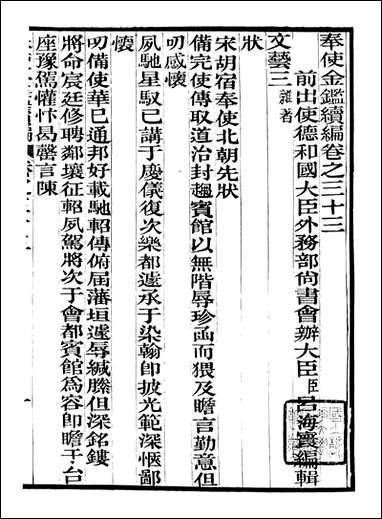 奉使金鑑續編卷之三十三
前出使德和國大臣外務部尚書會辦大臣臣呂海寰編輯
文藝三 雜著
狀
宋胡宿奉使北朝先狀
備完使傳取道治封趨賓館以無階辱珍函而猥及瞻言勤意但
叨感懷
夙馳星馭已講于慶儀復次樂都遽承于染翰即披光範深愜鄙
懷
叨備使華已通邦好載馳軺傳俯届藩垣遽辱緘縢但深銘鏤
將命宸廷修聘鄰壤征軺夙駕將次于會都賓館爲容即瞻于台
座豫儒懽忭曷罄言陳